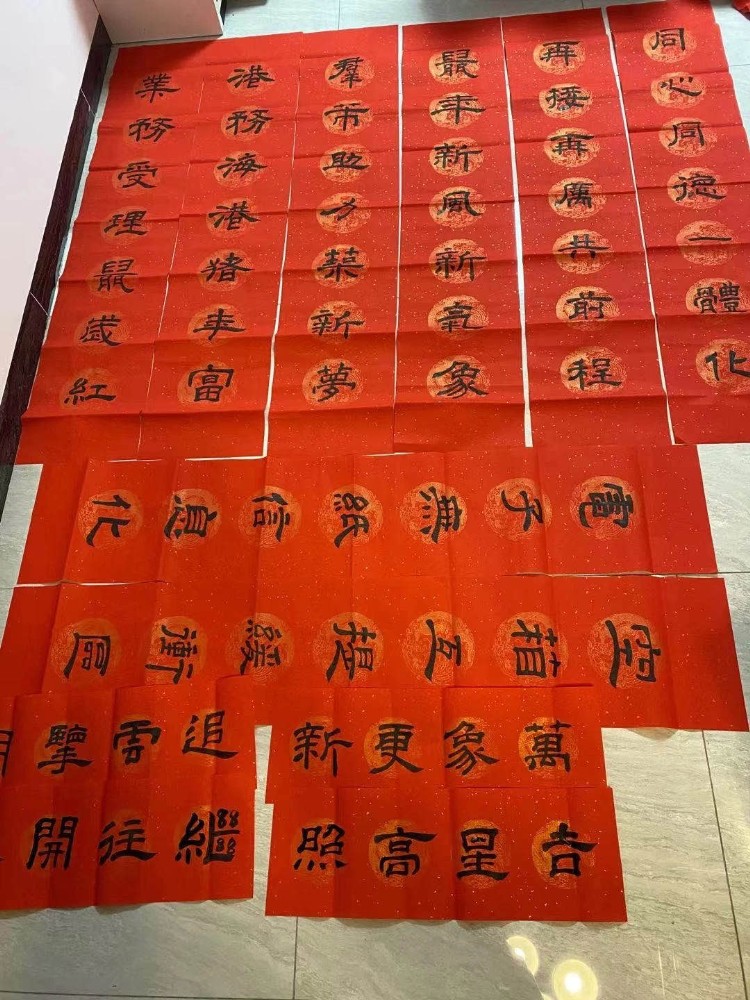 同心同德一體化
再接再厲共前程
鼠年新風新氣象
羣助力築新夢
港務海港猪年富
業務受理鼠歲紅
電子無紙信息化
空箱互提緩衝區
萬象更新
追雲擎
吉星高照
繼往開